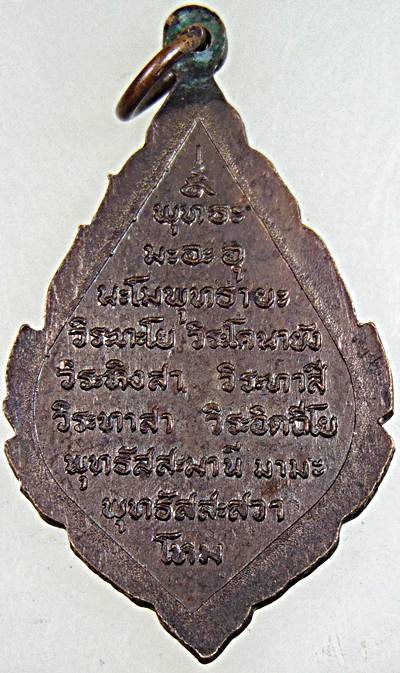 พุทธะ
มะอะอุ
นะโมพุทธายะ
วิระทะโย วิระโคนายัง
วิระหิงสา วิระทาสี
วิระทาสา วิระอิตถิโย
พุทธัสสะมานี มามะ
พุทธัสสะสวา
โหม